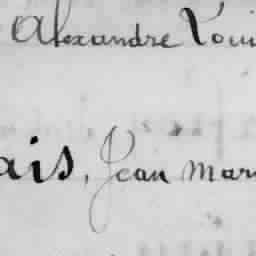 Alexandre Loui
ais, Jean Mar